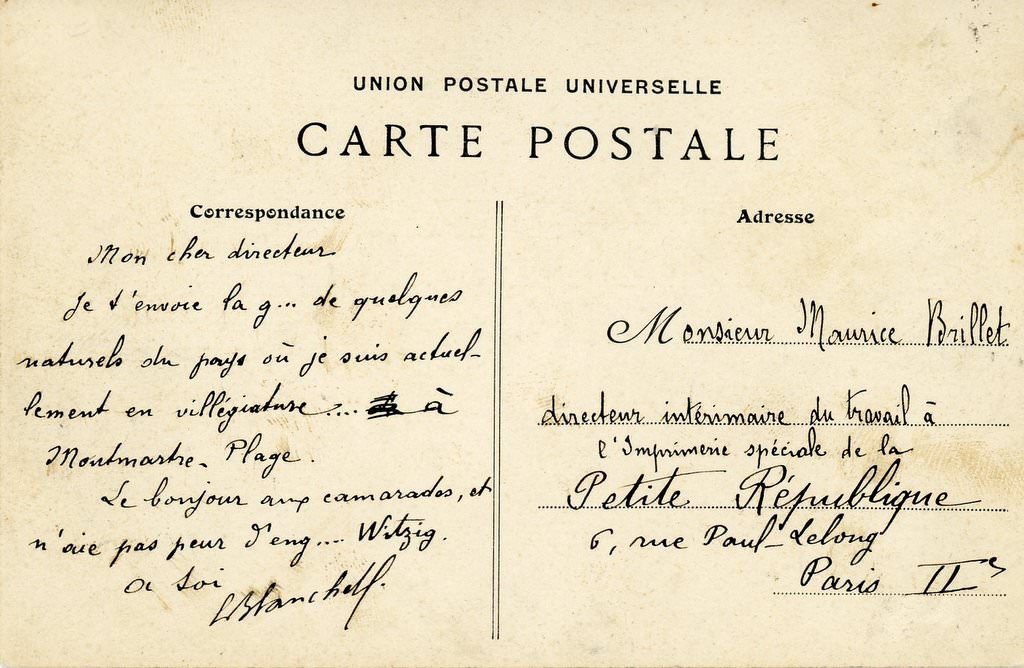 UNION POSTALE UNIVERSELLE
CARTE POSTALE
Correspondance
Mon cher directeur
Je t'envoie la g... de quelques
naturels du pays où je suis actuel-
lement en villégiature... à
Montmartre-Plage.
Le bonjour aux camarades, et
n'aie pas peur d'eng.... Witzig.
a toi
Adresse
Monsieur Maurice Brillet
directeur intérimaire du travail à
l'Imprimerie spéciale de la
Petite République
6, rue Paul-Lelong
Paris IIe